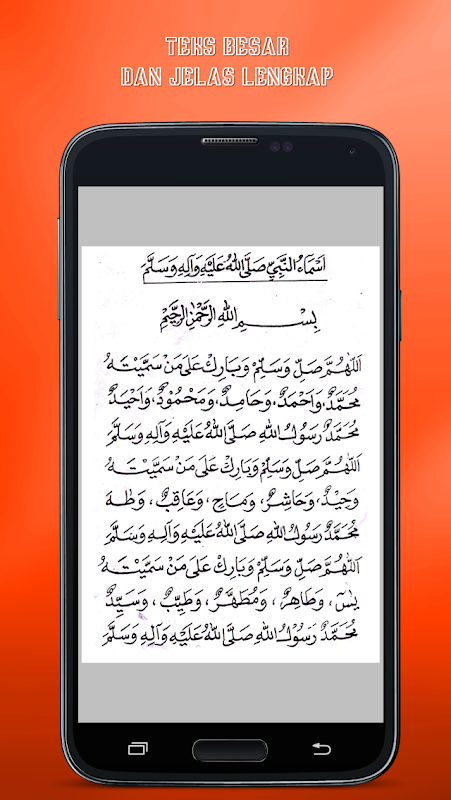 TEKS BESAR
DAN JELAS LENGKAP
اَسْمَاءُ النَّبِيِّ صَلَّى اللهُ عَلَيْهِ وَآلِهِ وَسَلَّمَ
بِسْمِ اللهِ الرَّحْمٰنِ الرَّحِيْمِ
اَللّٰهُمَّ صَلِّ وَسَلِّمْ وَبَارِكْ عَلَى مَنْ سَمَّيْتَهُ
مُحَمَّدٌ، وَاَحْمَدٌ، وَحَامِدٌ، وَمَحْمُوْدٌ، وَاَحْيَدٌ
مُحَمَّدٌ رَسُوْلُ اللهِ صَلَّى اللهُ عَلَيْهِ وَآلِهِ وَسَلَّمَ
اَللّٰهُمَّ صَلِّ وَسَلِّمْ وَبَارِكْ عَلَى مَنْ سَمَّيْتَهُ
وَحِيْدٌ، وَحَاشِرٌ، وَمَاحٍ، وَعَاقِبٌ، وَطٰهَ
مُحَمَّدٌ رَسُوْلُ اللهِ صَلَّى اللهُ عَلَيْهِ وَآلِهِ وَسَلَّمَ
اَللّٰهُمَّ صَلِّ وَسَلِّمْ وَبَارِكْ عَلَى مَنْ سَمَّيْتَهُ
يٰسٓ، وَطَاهِرٌ، وَمُطَهَّرٌ، وَطَيِّبٌ، وَسَيِّدٌ
مُحَمَّدٌ رَسُوْلُ اللهِ صَلَّى اللهُ عَلَيْهِ وَآلِهِ وَسَلَّمَ